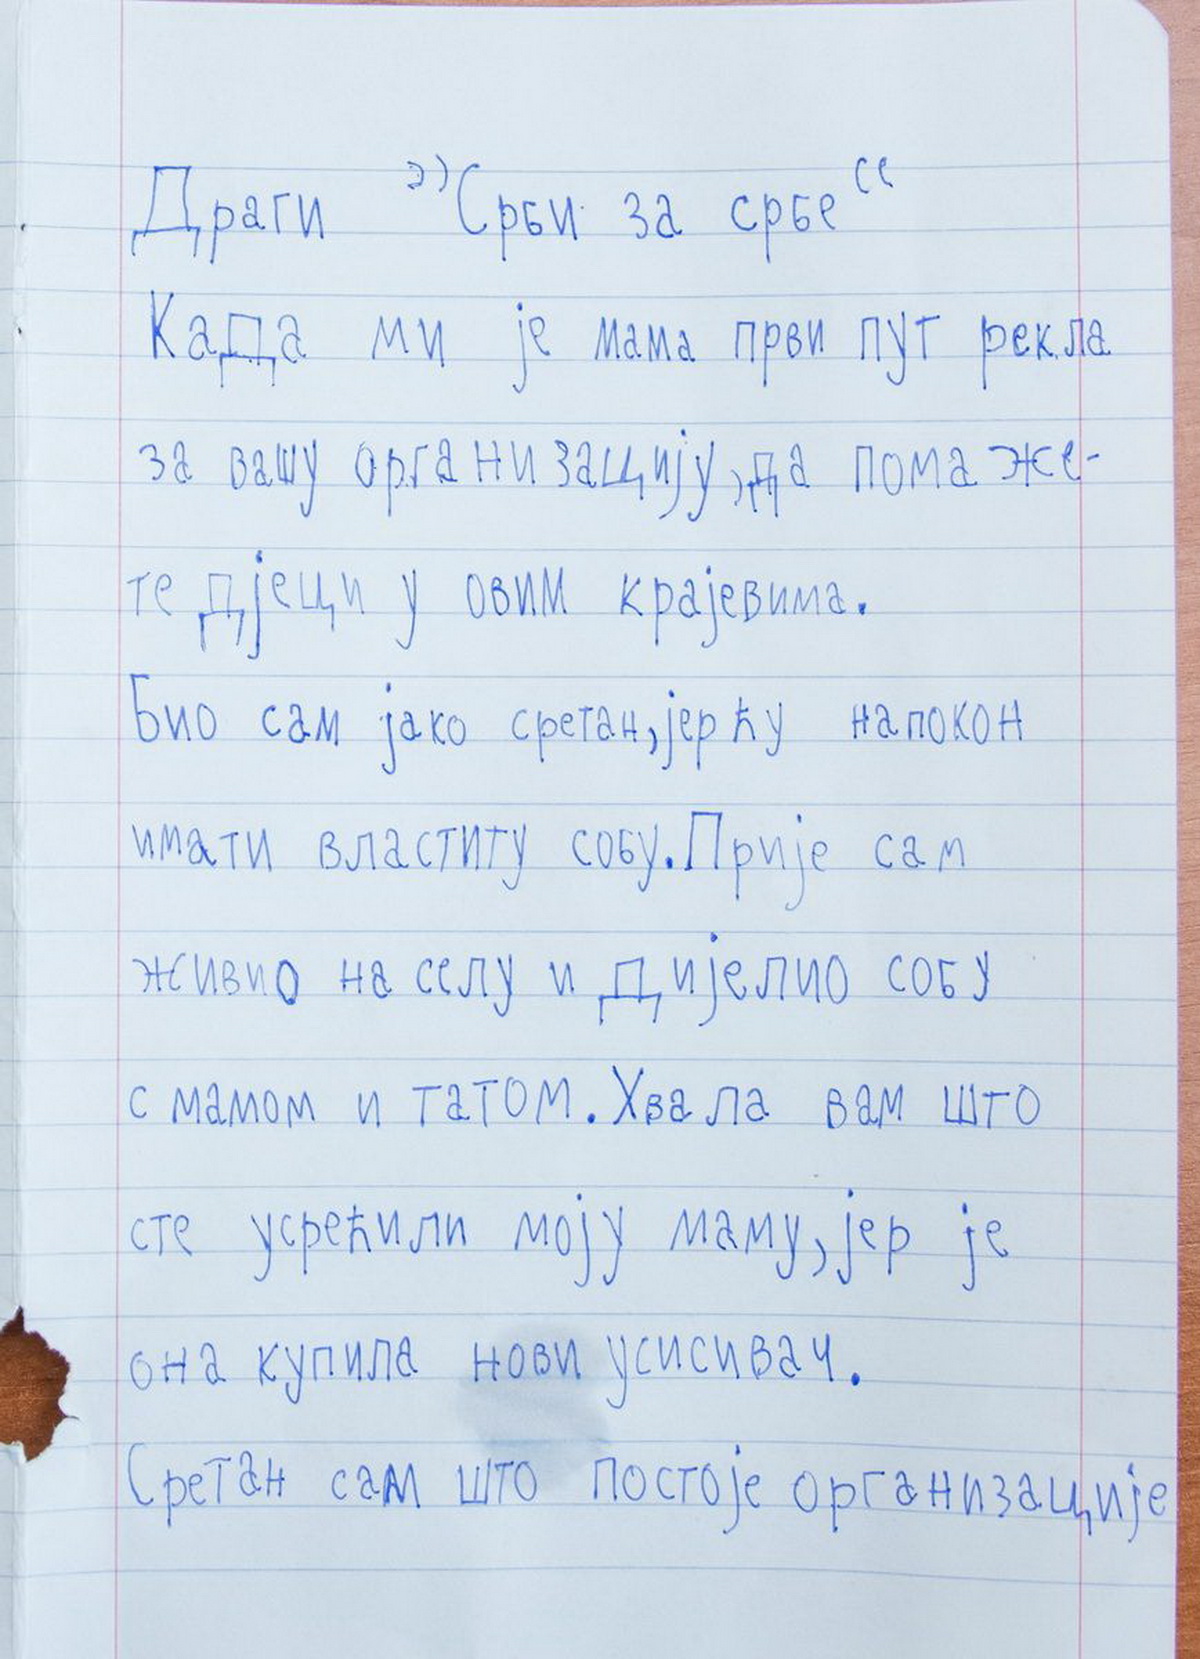 Драги ”Срби за србе“
Када ми је мама први пут рекла
за вашу организацију, да помаже-
те дјеци у овим крајевима.
Био сам јако сретан, јер ћу напокон
имати властиту собу. Прије сам
живио на селу и дијелио собу
с мамом и татом. Хвала вам што
сте усрећили моју маму, јер је
она купила нови усисивач.
Сретан сам што постоје организације